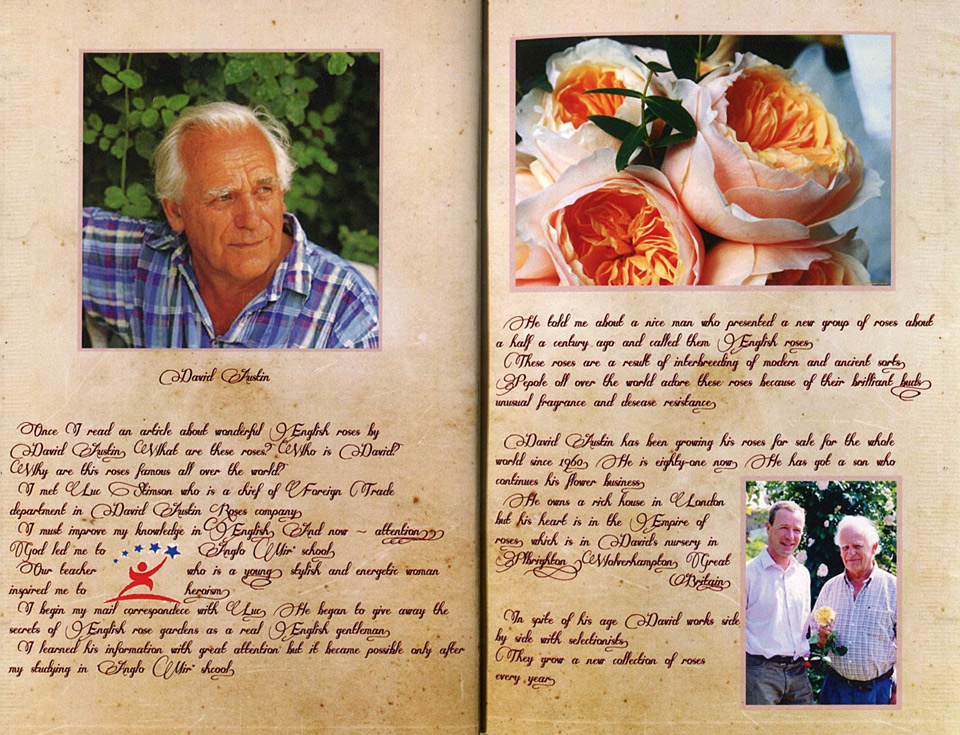 David Austin
Once I read an article about wonderful English roses by
David Austin. What are these roses? Who is David?
Why are this roses famous all over the world?
I met Luc Stimson who is a chief of Foreign Trade
department in David Austin Roses company.
I must improve my knowledge in English. And now - attention,,,
God led me to Anglo Mir' school.
Our teacher who is a young, stylish and energetic woman
inspired me to heroism.
I begin my mail correspondece with Luc. He began to give away the
secrets of English rose gardens as a real English gentleman.
I learned his information with great attention but it became possible only after
my studying in Anglo Mir' shcool.
He told me about a nice man who presented a new group of roses about
a half a century ago and called them English roses.
These roses are a result of interbreeding of modern and ancient sorts.
Pepole all over the world adore these roses because of their brilliant buds,
unusual fragrance and desease resistance.
David Austin has been growing his roses for sale for the whole
world since 1960. He is eighty-one now. He has got a son who
continues his flower business.
He owns a rich house in London
but his heart is in the Empire of
roses, which is in David's nursery in
Albrighton, Wolverhampton, Great
Britain.
In spite of his age David works side
by side with selectionists.
They grow a new collection of roses
every year.